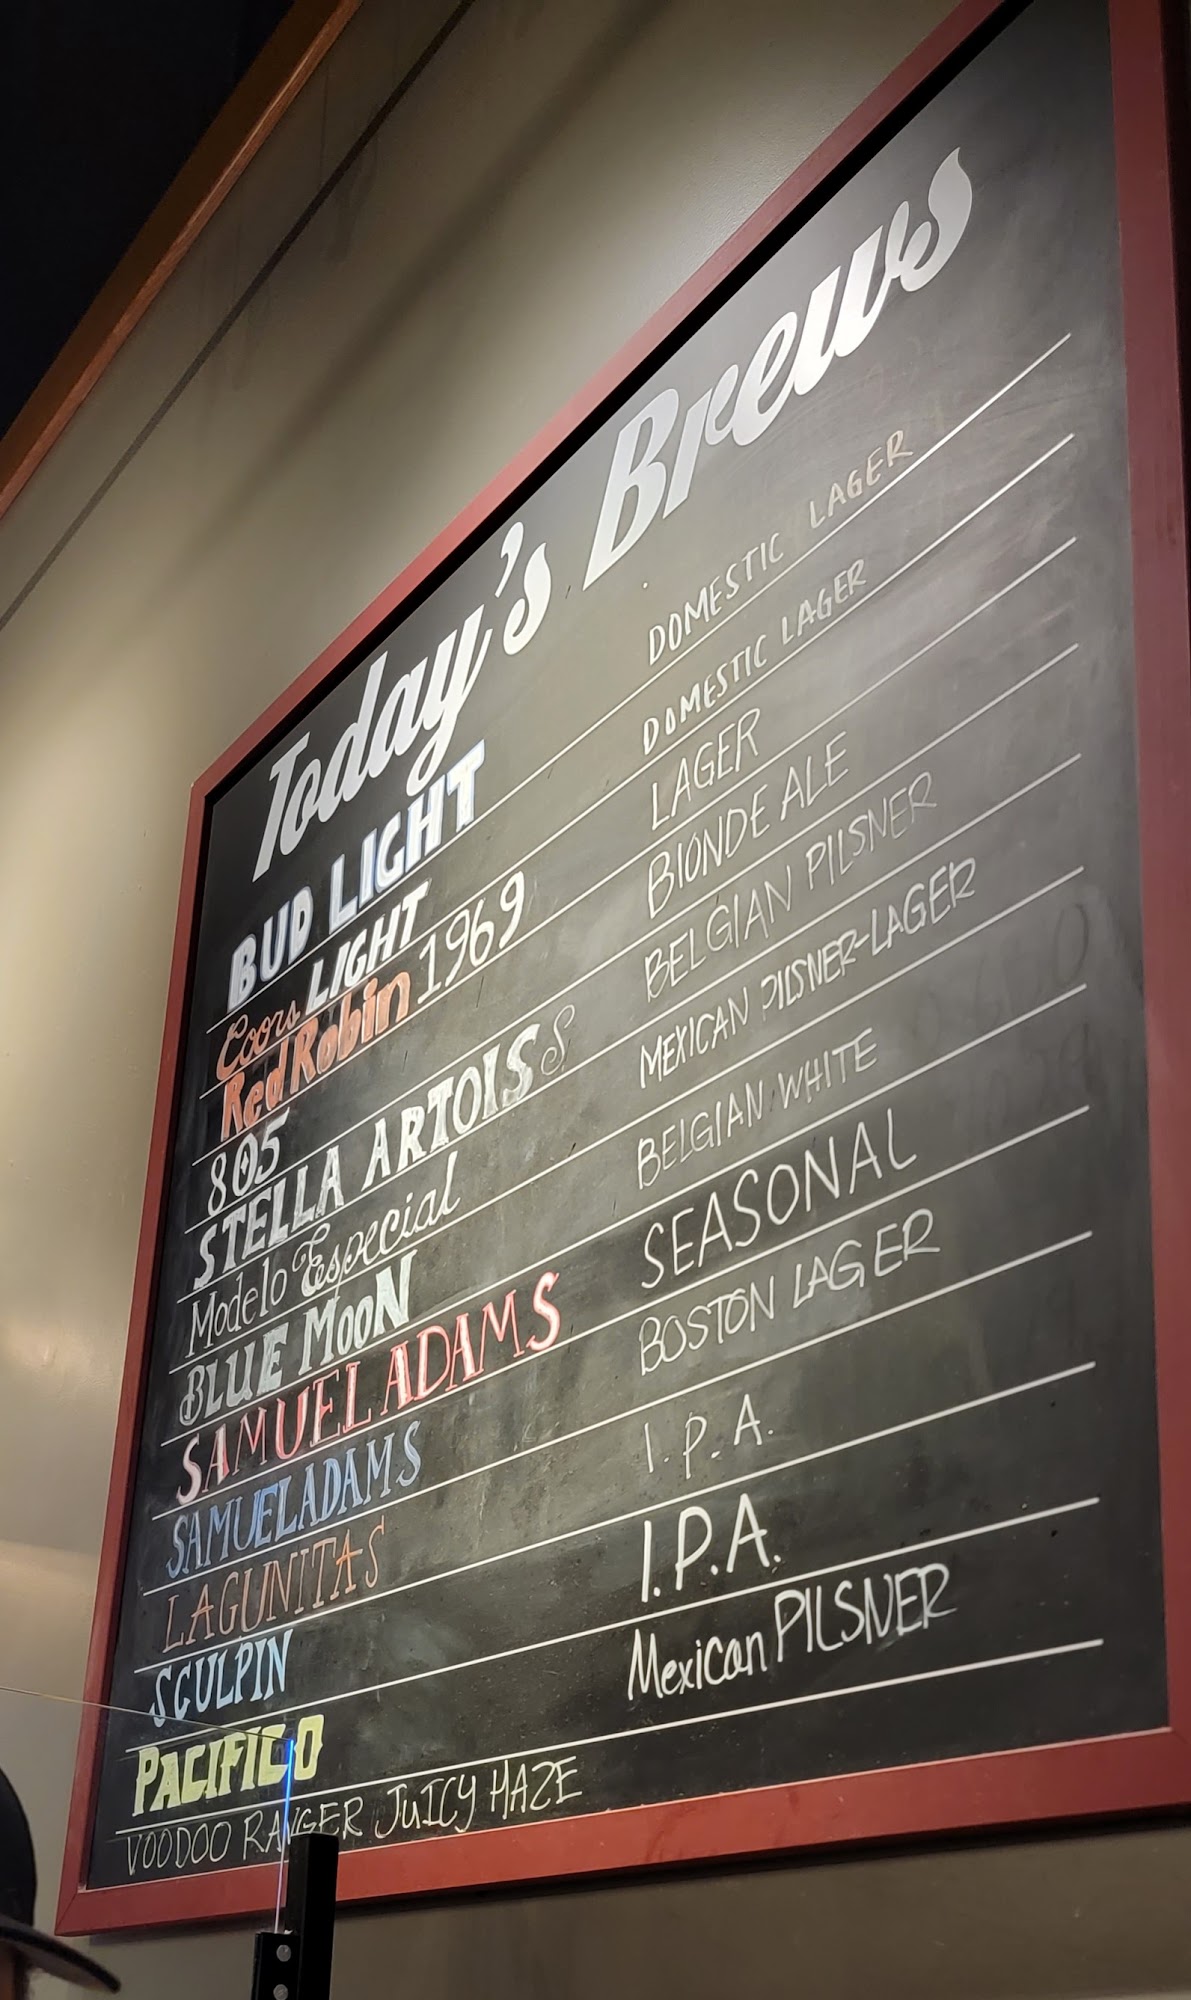 Today's Brews
BUD LIGHT DOMESTIC LAGER
Coors LIGHT DOMESTIC LAGER
Red Robin 1969 LAGER
805 BLONDE ALE
STELLA ARTOISS BELGIAN PILSNER
Modelo Especial MEXICAN PILSNER-LAGER
BLUE MOON BELGIAN WHITE
SAMUEL ADAMS SEASONAL
SAMUEL ADAMS BOSTON LAGER
LAGUNITAS I.P.A.
SCULPIN I.P.A.
PACIFICO Mexican PILSNER
VOODOO RANGER JUICY HAZE